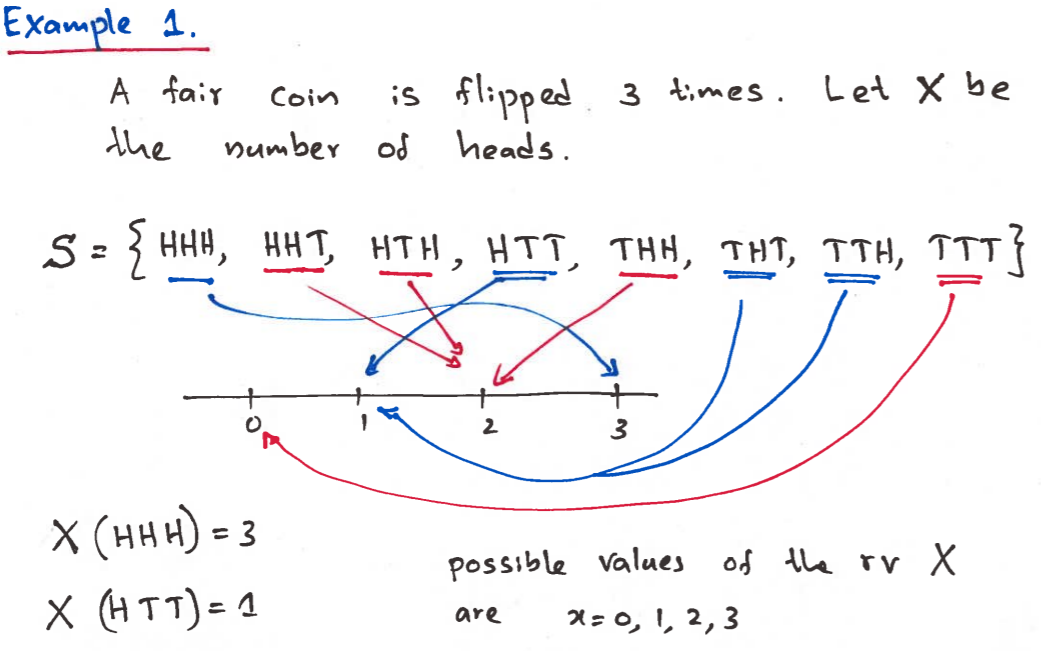 Example 1.
A fair coin is flipped 3 times. Let X be
the number of heads.
S = { HHH, HHT, HTH, HTT, THH, THT, TTH, TTT }
0 1 2 3
X (HHH) = 3
possible values of the rv X
X (HTT) = 1
are x = 0, 1, 2, 3